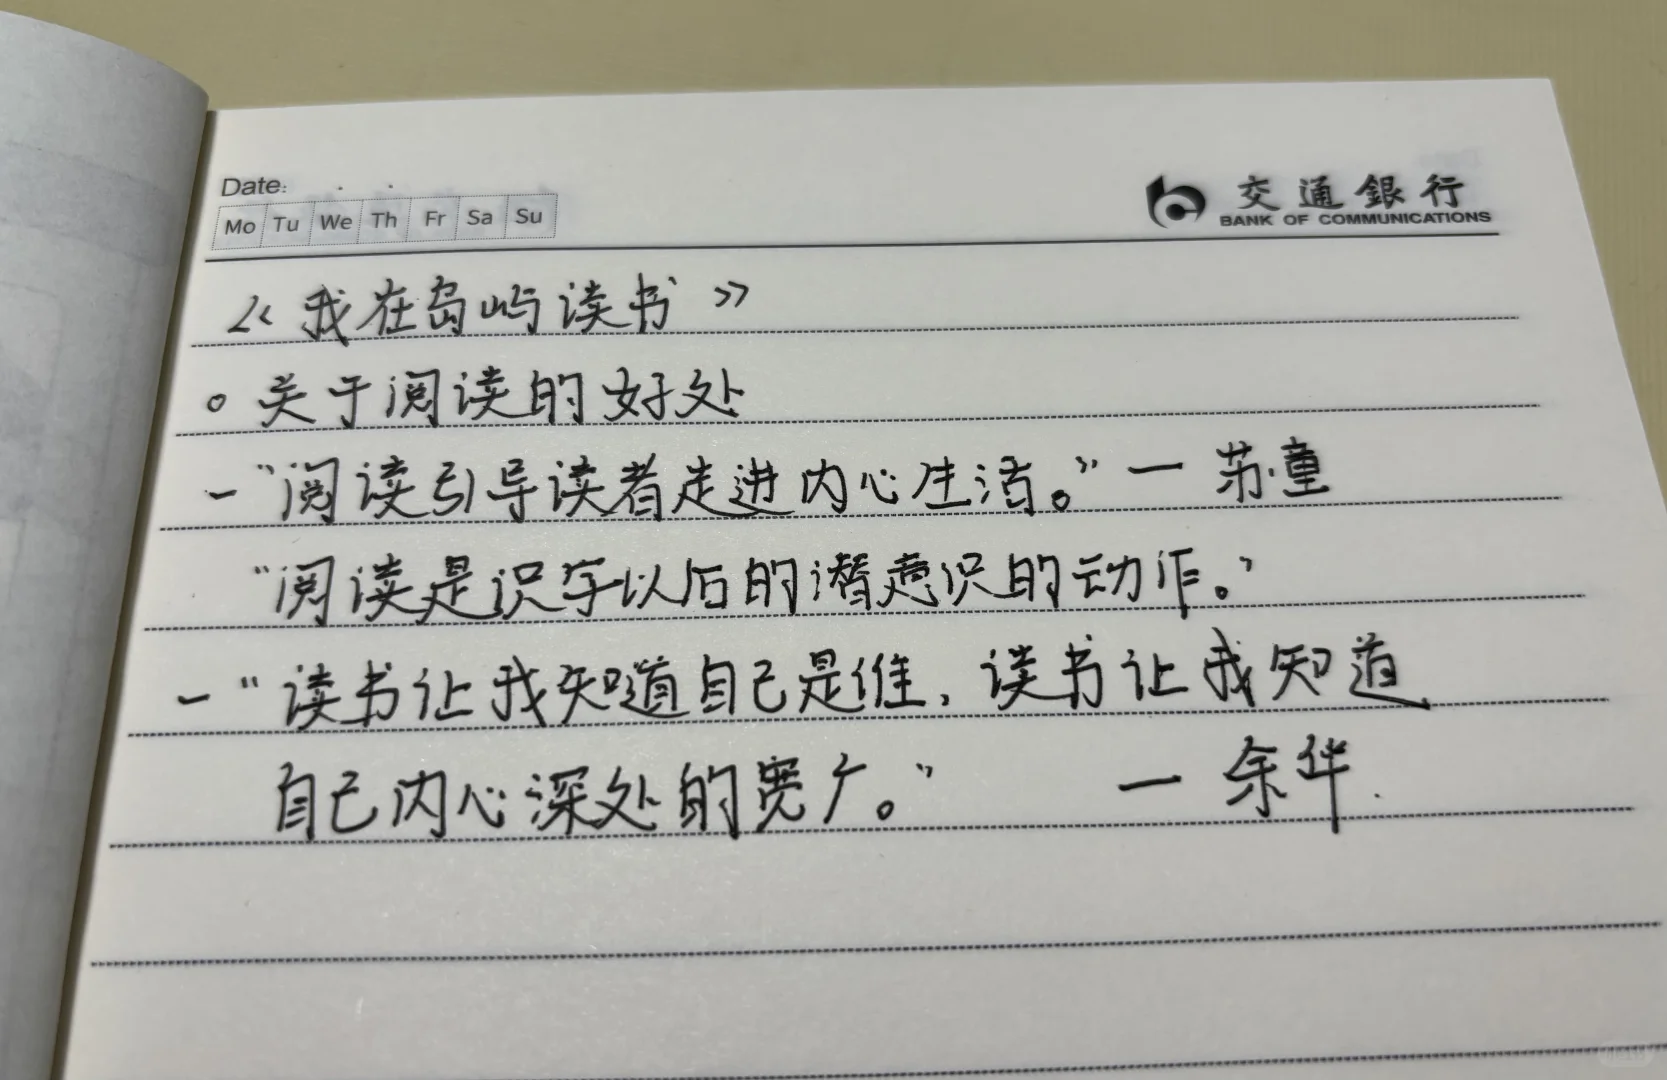 Date:
Mo Tu We Th Fr Sa Su
交通銀行
BANK OF COMMUNICATIONS
《我在岛屿读书》
。关于阅读的好处
-“阅读引导读者走进内心生活。”—苏童
“阅读是识字以后的潜意识的动作。”
-“读书让我知道自己是谁，读书让我知道
自己内心深处的宽广。” —余华.